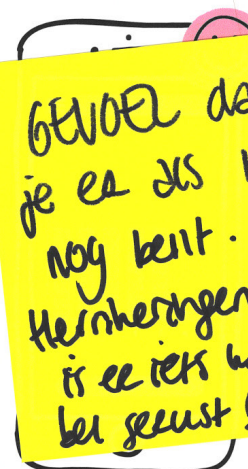 GEVOEL da
je er als
nog bent.
Herinneringen
is er iets
bel gerust